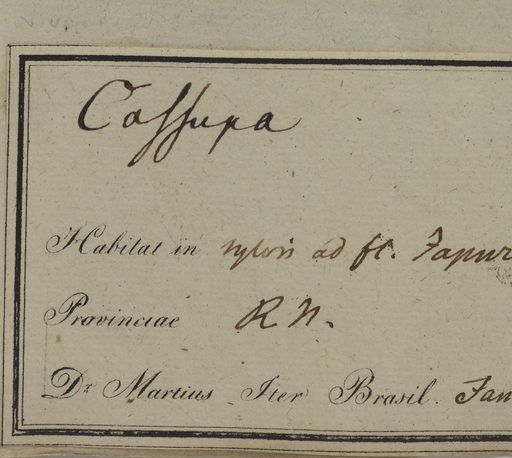 Cassupa
Habitat in sylvis ad fl. Japur
Provinciae R N.
Dr. Martius Iter Brasil. Jan